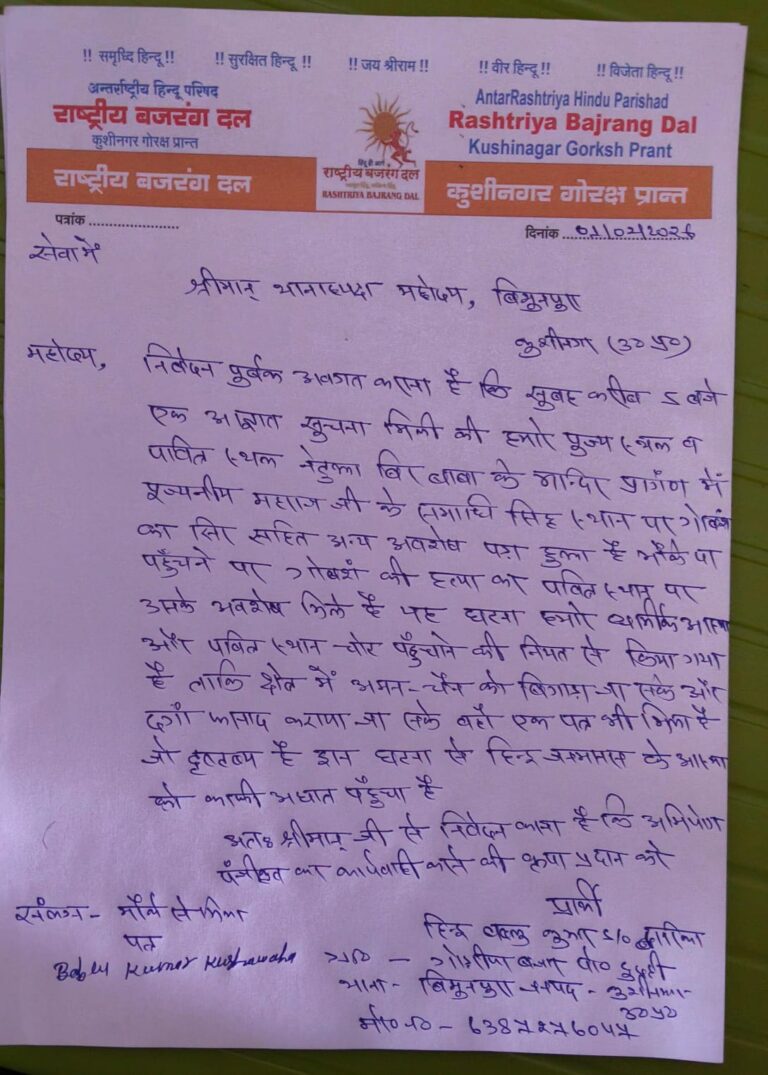 !! समृध्दि हिन्दू !! !! सुरक्षित हिन्दू !! !! जय श्रीराम !! !! वीर हिन्दू !! !! विजेता हिन्दू !!
अन्तर्राष्ट्रीय हिन्दू परिषद
राष्ट्रीय बजरंग दल
कुशीनगर गोरक्ष प्रान्त
AntarRashtriya Hindu Parishad
Rashtriya Bajrang Dal
Kushinagar Gorksh Prant
हिन्दू ही आगे
राष्ट्रीय बजरंग दल
RASHTRIYA BAJRANG DAL
राष्ट्रीय बजरंग दल
कुशीनगर गोरक्ष प्रान्त
पत्रांक
दिनांक
सेवा में
श्रीमान् थानाध्यक्ष महोदय,
कुशीनगर (उ० प्र०)
महोदय, निवेदन पुर्वक अवगत कराना है कि सुबह करीब 5 बजे
एक अज्ञात सुचना मिली की हमारे पुज्य स्थल व
पवित्र स्थल बाबा के मन्दिर प्रागंण में
पुज्यनीय महाराज जी के समाधि स्थान पर गोवंश
का सिर सहित अन्य अवशेष पड़ा हुआ है मौके पर
पहुँचने पर गोवंश की हत्या कर पवित्र स्थान पर
उसके अवशेष मिले है यह घटना हमारे धार्मिक आस्था
और पवित्र स्थान चोट पहुँचाने की नियत से किया गया
है ताकि क्षेत्र में अमन-चैन को बिगाड़ा जा सके और
दगाँ फसाद कराया जा सके वहाँ एक पत्र भी मिला है
जो है इस घटना से हिन्दू जनमानस के आस्था
को काफी अघात पहुँचा है
अतः श्रीमान् जी से निवेदन करना है कि अभियोग
पंजीकृत कर कार्यवाही करने की कृपा प्रदान करे
प्रार्थी
संलग्न - मौके से मिला
पत्र
Bablu Kumar Kushawaha
S/O
पो० दुदही
थाना - जनपद - कुशीनगर
उ० प्र०
मो० न० -